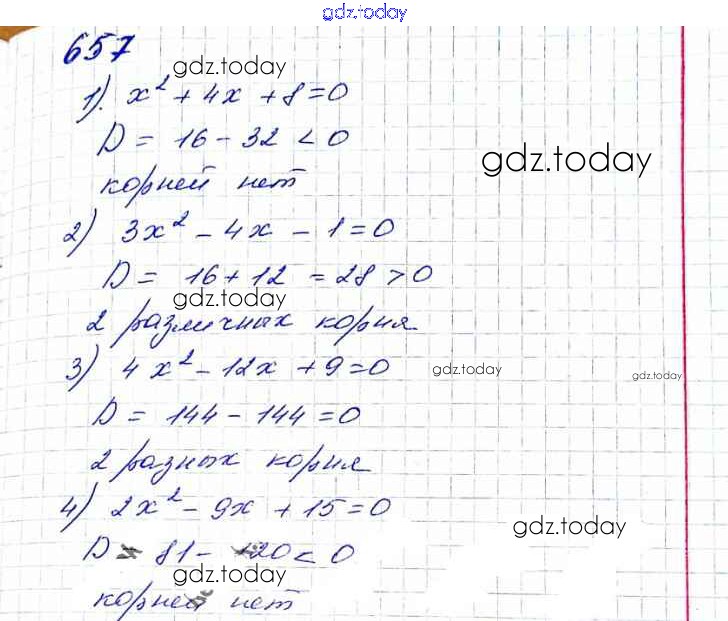 gdz.today
657
gdz.today
1). x² + 4x + 8 = 0
D = 16 - 32 < 0
gdz.today
корней нет
2) 3x² - 4x - 1 = 0
D = 16 + 12 = 28 > 0
gdz.today
2 различных корня
3) 4x² - 12x + 9 = 0
gdz.today
gdz.today
D = 144 - 144 = 0
2 разных корня
4) 2x² - 9x + 15 = 0
gdz.today
D = 81 - 120 < 0
gdz.today
корней нет